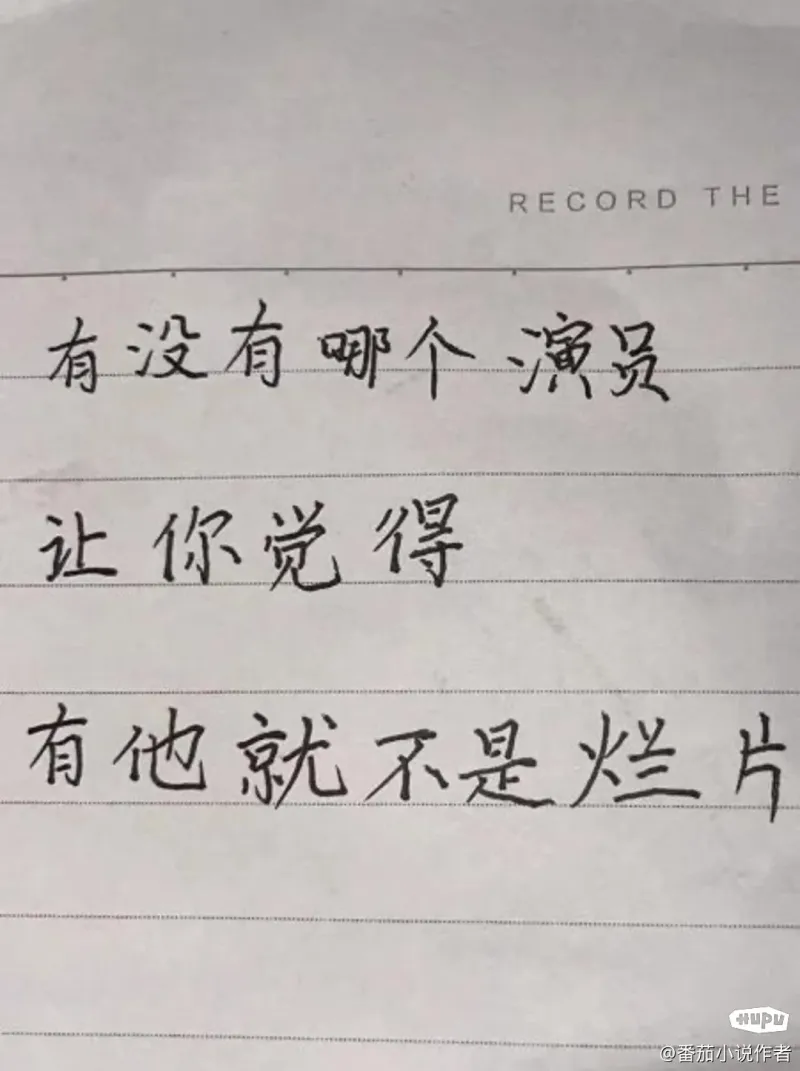 RECORD THE
有没有哪个演员
让你觉得
有他就不是烂片
HUPU
@番茄小说作者